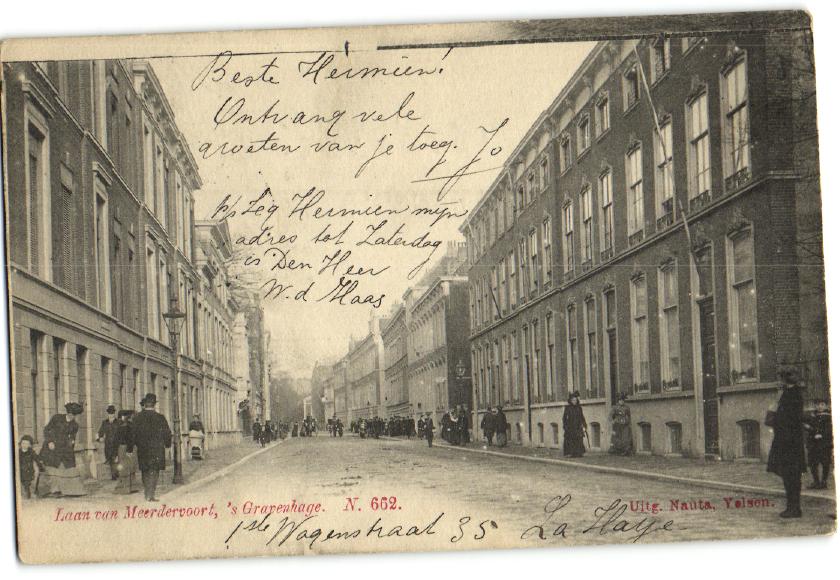 Beste Hermien!
Ontvang vele
groeten van je toeg. Jo
p/s Zeg Hermien mijn
adres tot Zaterdag
is Den Heer
W. d Haas
Laan van Meerdervoort, 's Gravenhage. N. 662.
Uitg. Nauta, Velsen.
1ste Wagenstraat 35 La Haye